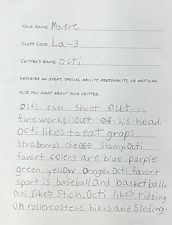 YOUR NAME: Maeve
CLASS CODE: La-3
CRITTER'S NAME: Octi
DESCRIBE AN EVENT, SPECIAL ABILITY, PERSONALITY, OR ANYTHING
ELSE YOU WANT ABOUT YOUR CRITTER.
Octi can shoot out
fireworks out of his head.
Octi likes to eat graps
cheese Octi
favort colers are blue purple
green yellow orange. Octi favort
sport is baseball and basketball,
octi likes Stich. Octi likes rideing
on rollercosters bikes and sleding.